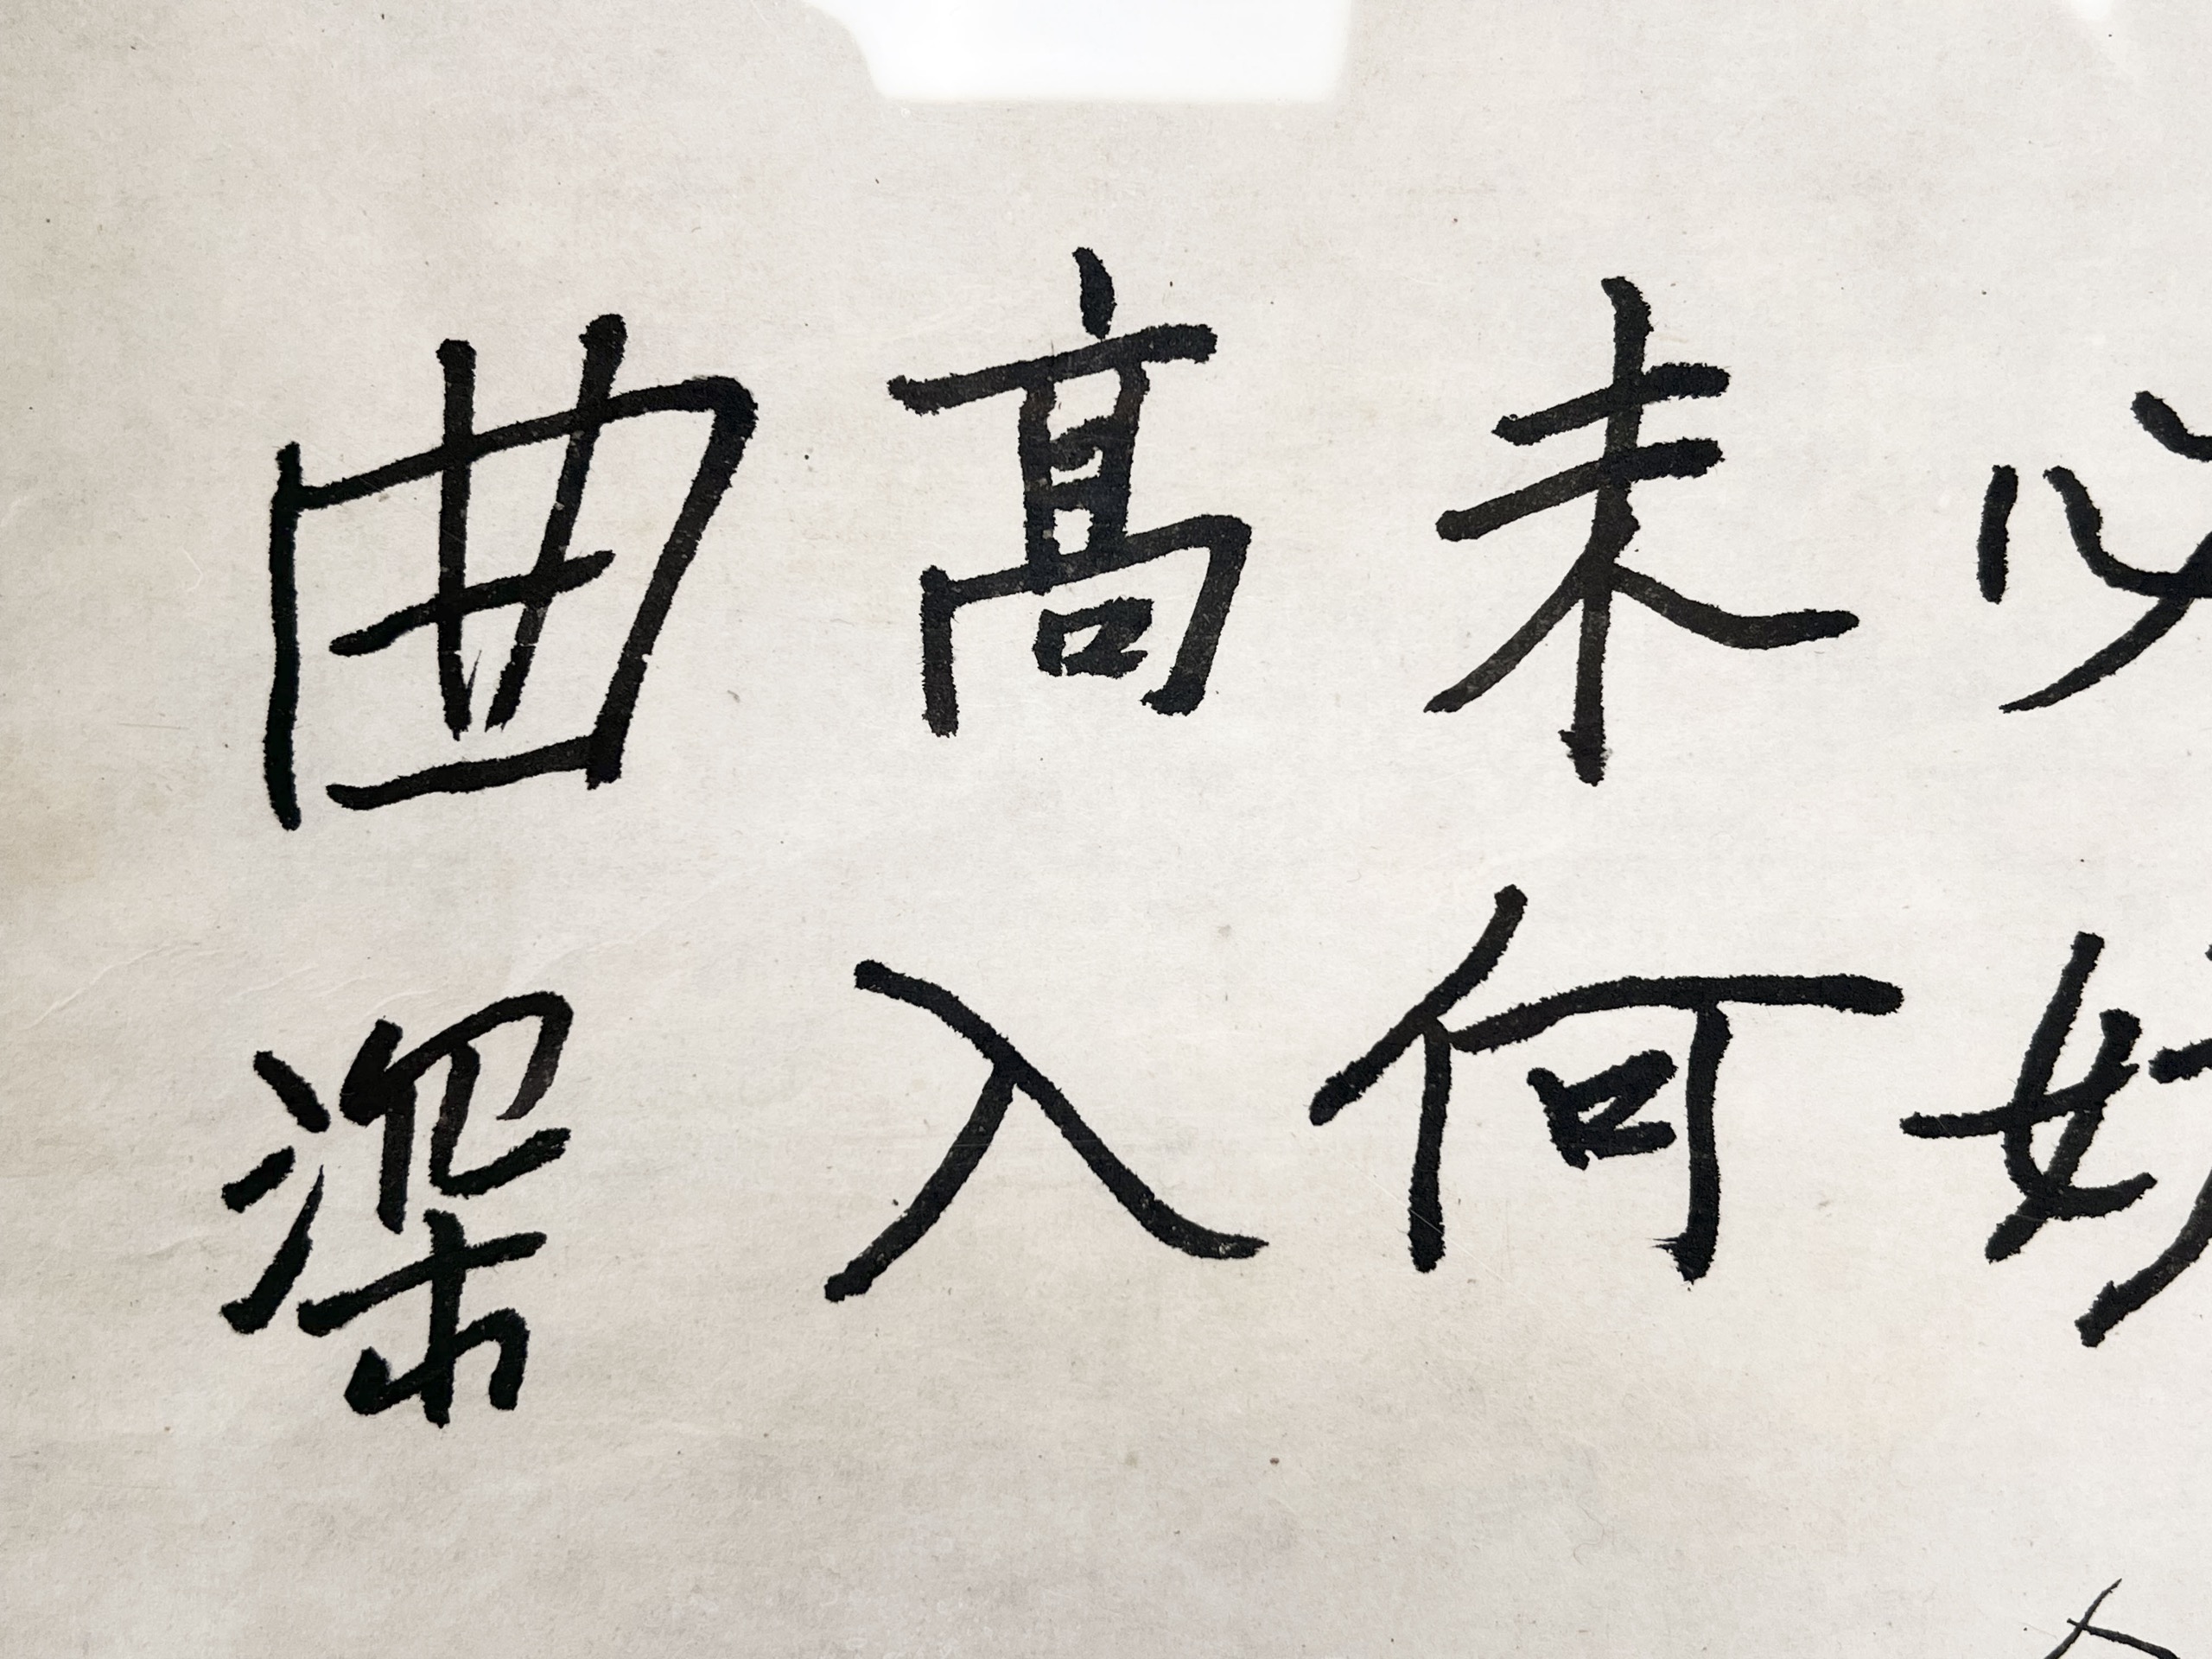 曲高未必
深入何妨